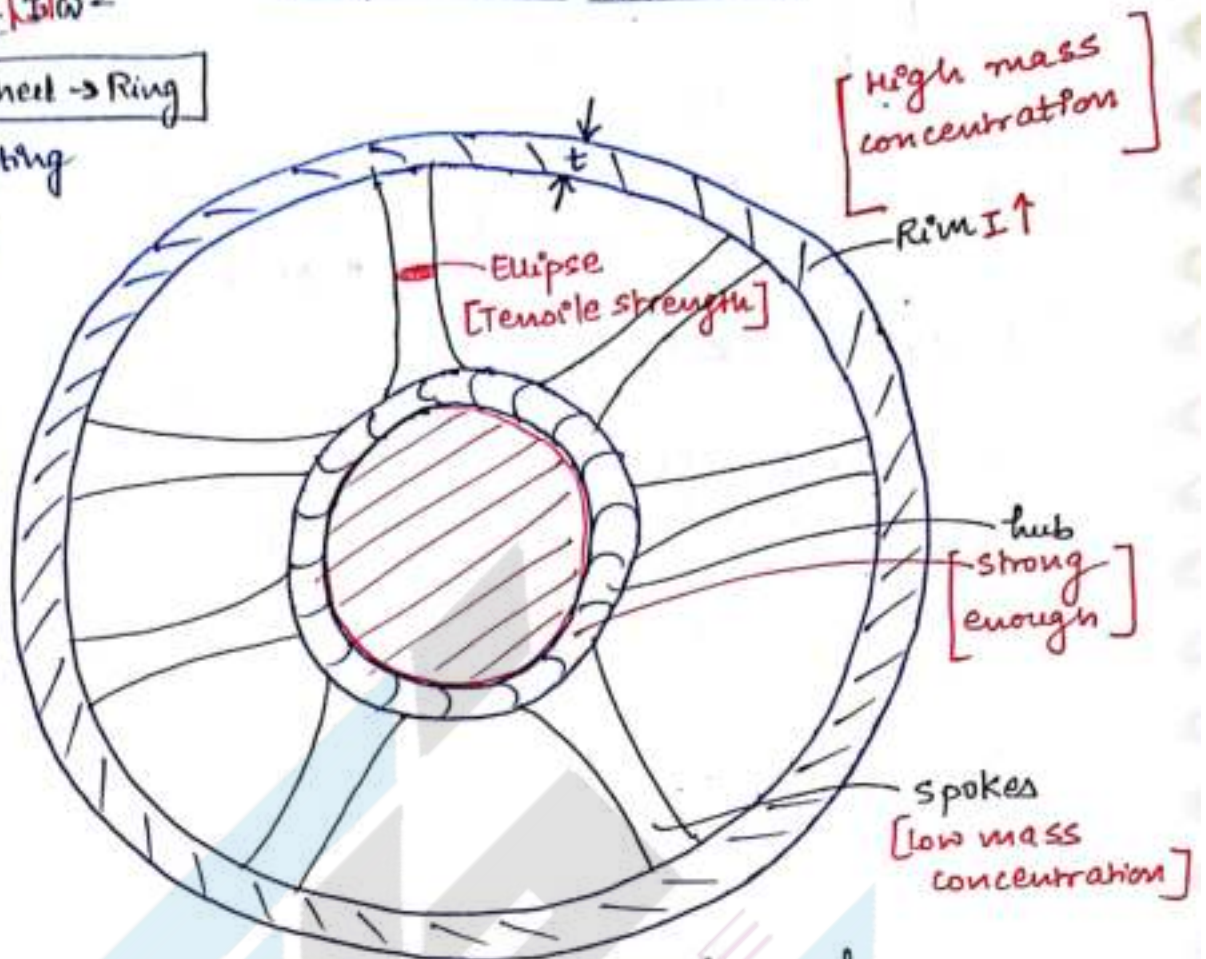 → Ring
High mass
concentration
t
Rim I ↑
Ellipse
[Tensile strength]
hub
[strong
enough]
spokes
[Low mass
concentration]